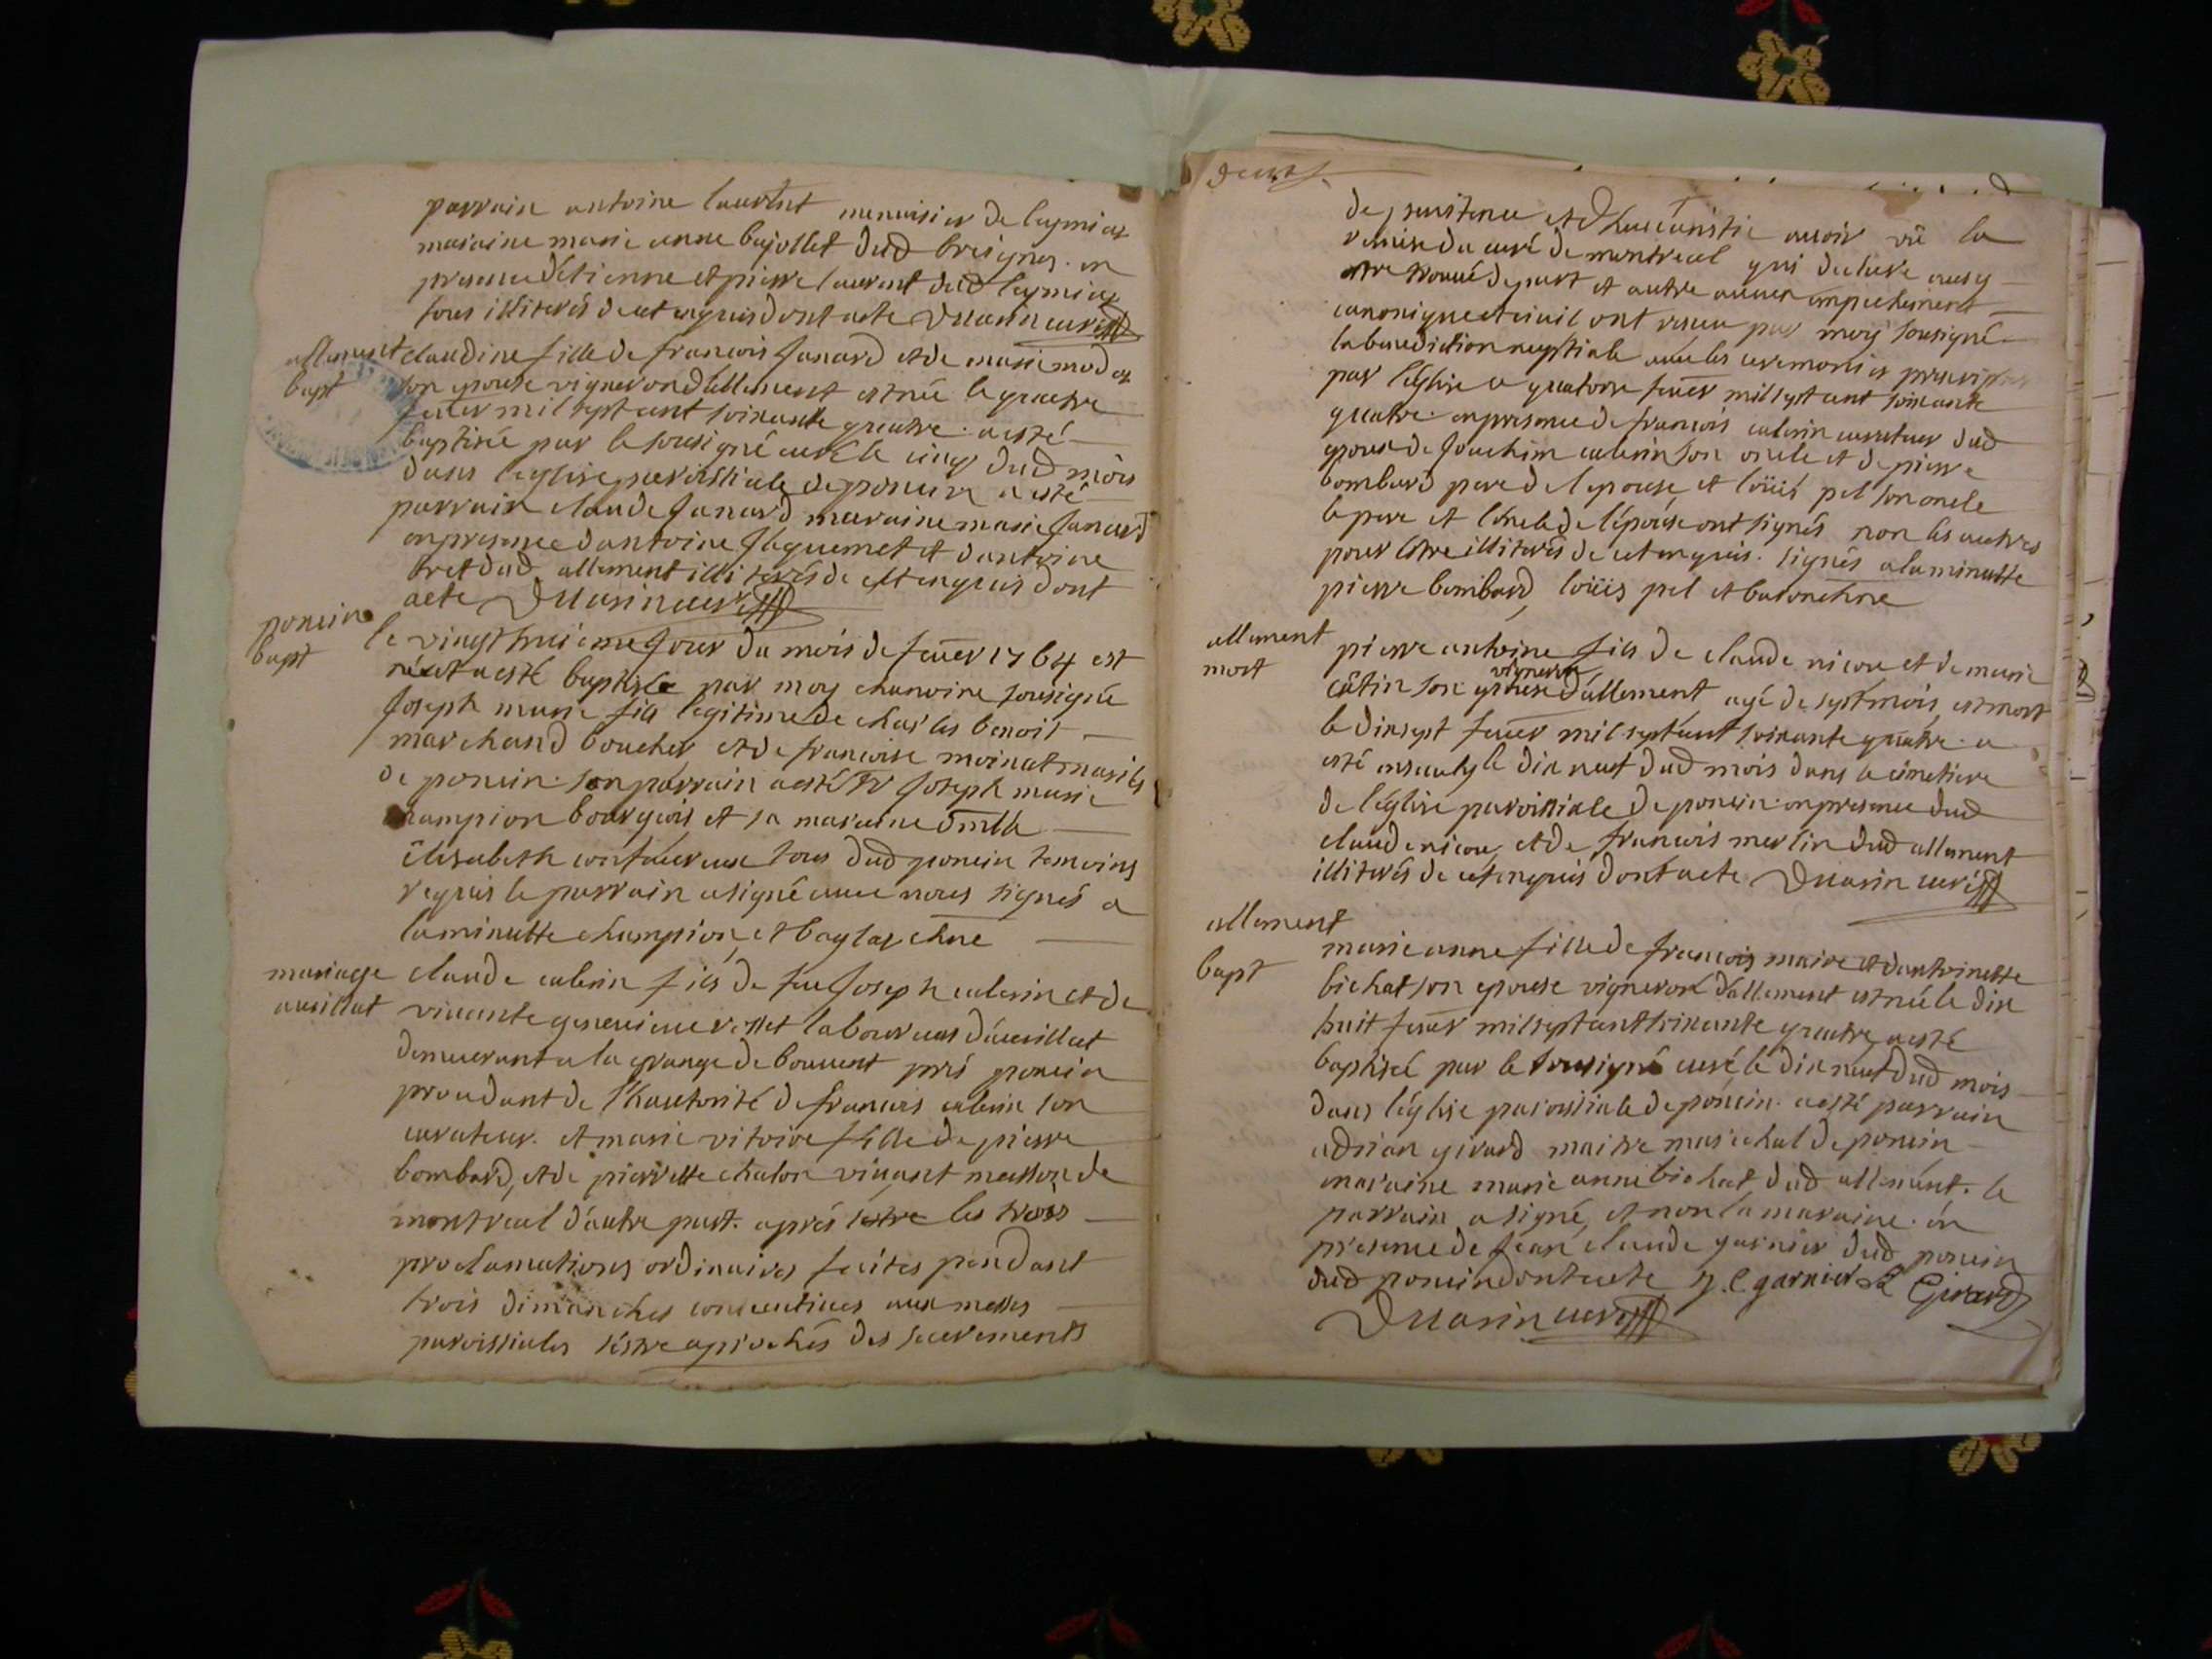 parrain antoine laurent menuisier de leymiat
maraine marie anne bajollet dud bresignes. en
presence d'etienne et pierre laurent dud leymiat
tous illiterés de cet enquis dont acte Duarin curé
allement claudine fille de francois Janard et de marie
bapt son epouse vigneron d'allement est née le quatre
feuer mil sept cent soixante quatre. a esté
baptisée par le sousigné curé le cinq dud mois
dans leglise paroissiale de poncin a esté
parrain claude Janard maraine marie Janard
en presence dantoine Jaquemet et dantoine
bret dud allement illiterés de cet enquis dont
acte Duarin curé
poncin
bapt
le vingt huicme jour du mois de feuer 1764 est
né et a esté baptisé par moy chanoine sousigné
Joseph marie fils legitime de charles benoit
marchand boucher et de francoise moinat mariés
de poncin. son parrain a esté Sr Joseph marie
champion bourgeois et sa maraine dmlle
elisabeth tous dud poncin temoins
requis le parrain a signé avec nous signés a
la minutte champion, et baglay chne
mariage claude caberin fils de feu Joseph caberin et de
auillat vivante genevieve rosset laboureur
demeurant a la grange de bouuent prés poncin
procedant de l'hautorité de francois caberin son
curateur. et marie vitoire fille de pierre
bombard, et de pierrette chalon vivant masson de
montreal d'autre part. aprés lestre les trois
proclamations ordinaires faites pendant
trois dimanches consecutives aux messes
paroissiales s'estre aprochés des sacrements
de penitence et d'heucaristie avoir vü la
remise du curé de montreal qui declare
estre trouué de part et autre aucun empechement
canonique et ciuil ont receu par moy sousigné
la benediction nuptiale auec les ceremonies prescrites
par l'église ce quatorse feuer mil sept cent soixante
quatre. en presence de francois caberin curateur dud
epoux de Jouachim caberin son oncle et de pierre
bombard pere de lepouse, et loüis pel son oncle
le pere et l'oncle de l'épouse ont signés non les autres
pour lestre illiterés de cet enquis. signés a la minutte
pierre bombard, loüis pel et baronchne
allement
mort
pierre antoine fils de claude nicou et de marie
cätin son epouse vigneron d'allement agé de sept mois, est mort
le dix sept feuer mil sept cent soixante quatre. a
esté enseuely le dix neuf dud mois dans le cimetiere
de l'église paroissiale de poncin. en presence dud
claude nicou, et de francois merlin dud allement
illiterés de cet enquis dont acte Duarin curé
allement
bapt
marie anne fille de francois maire et d'antoinette
bichat son epouse vigneron d'allement est née le dix
huit feuer mil sept cent soixante quatre, a esté
baptisée par le sousigné curé le dix neuf dud mois
dans l'église paroissiale de poncin. a esté parrain
adrian girard maitre marechal de poncin
maraine marie anne bichat, dud allemént. le
parrain a signé, et non la maraine. en
presence de Jean claude garnier dud poncin
dud poncin dont acte J. C garnier Girard
Duarin curé